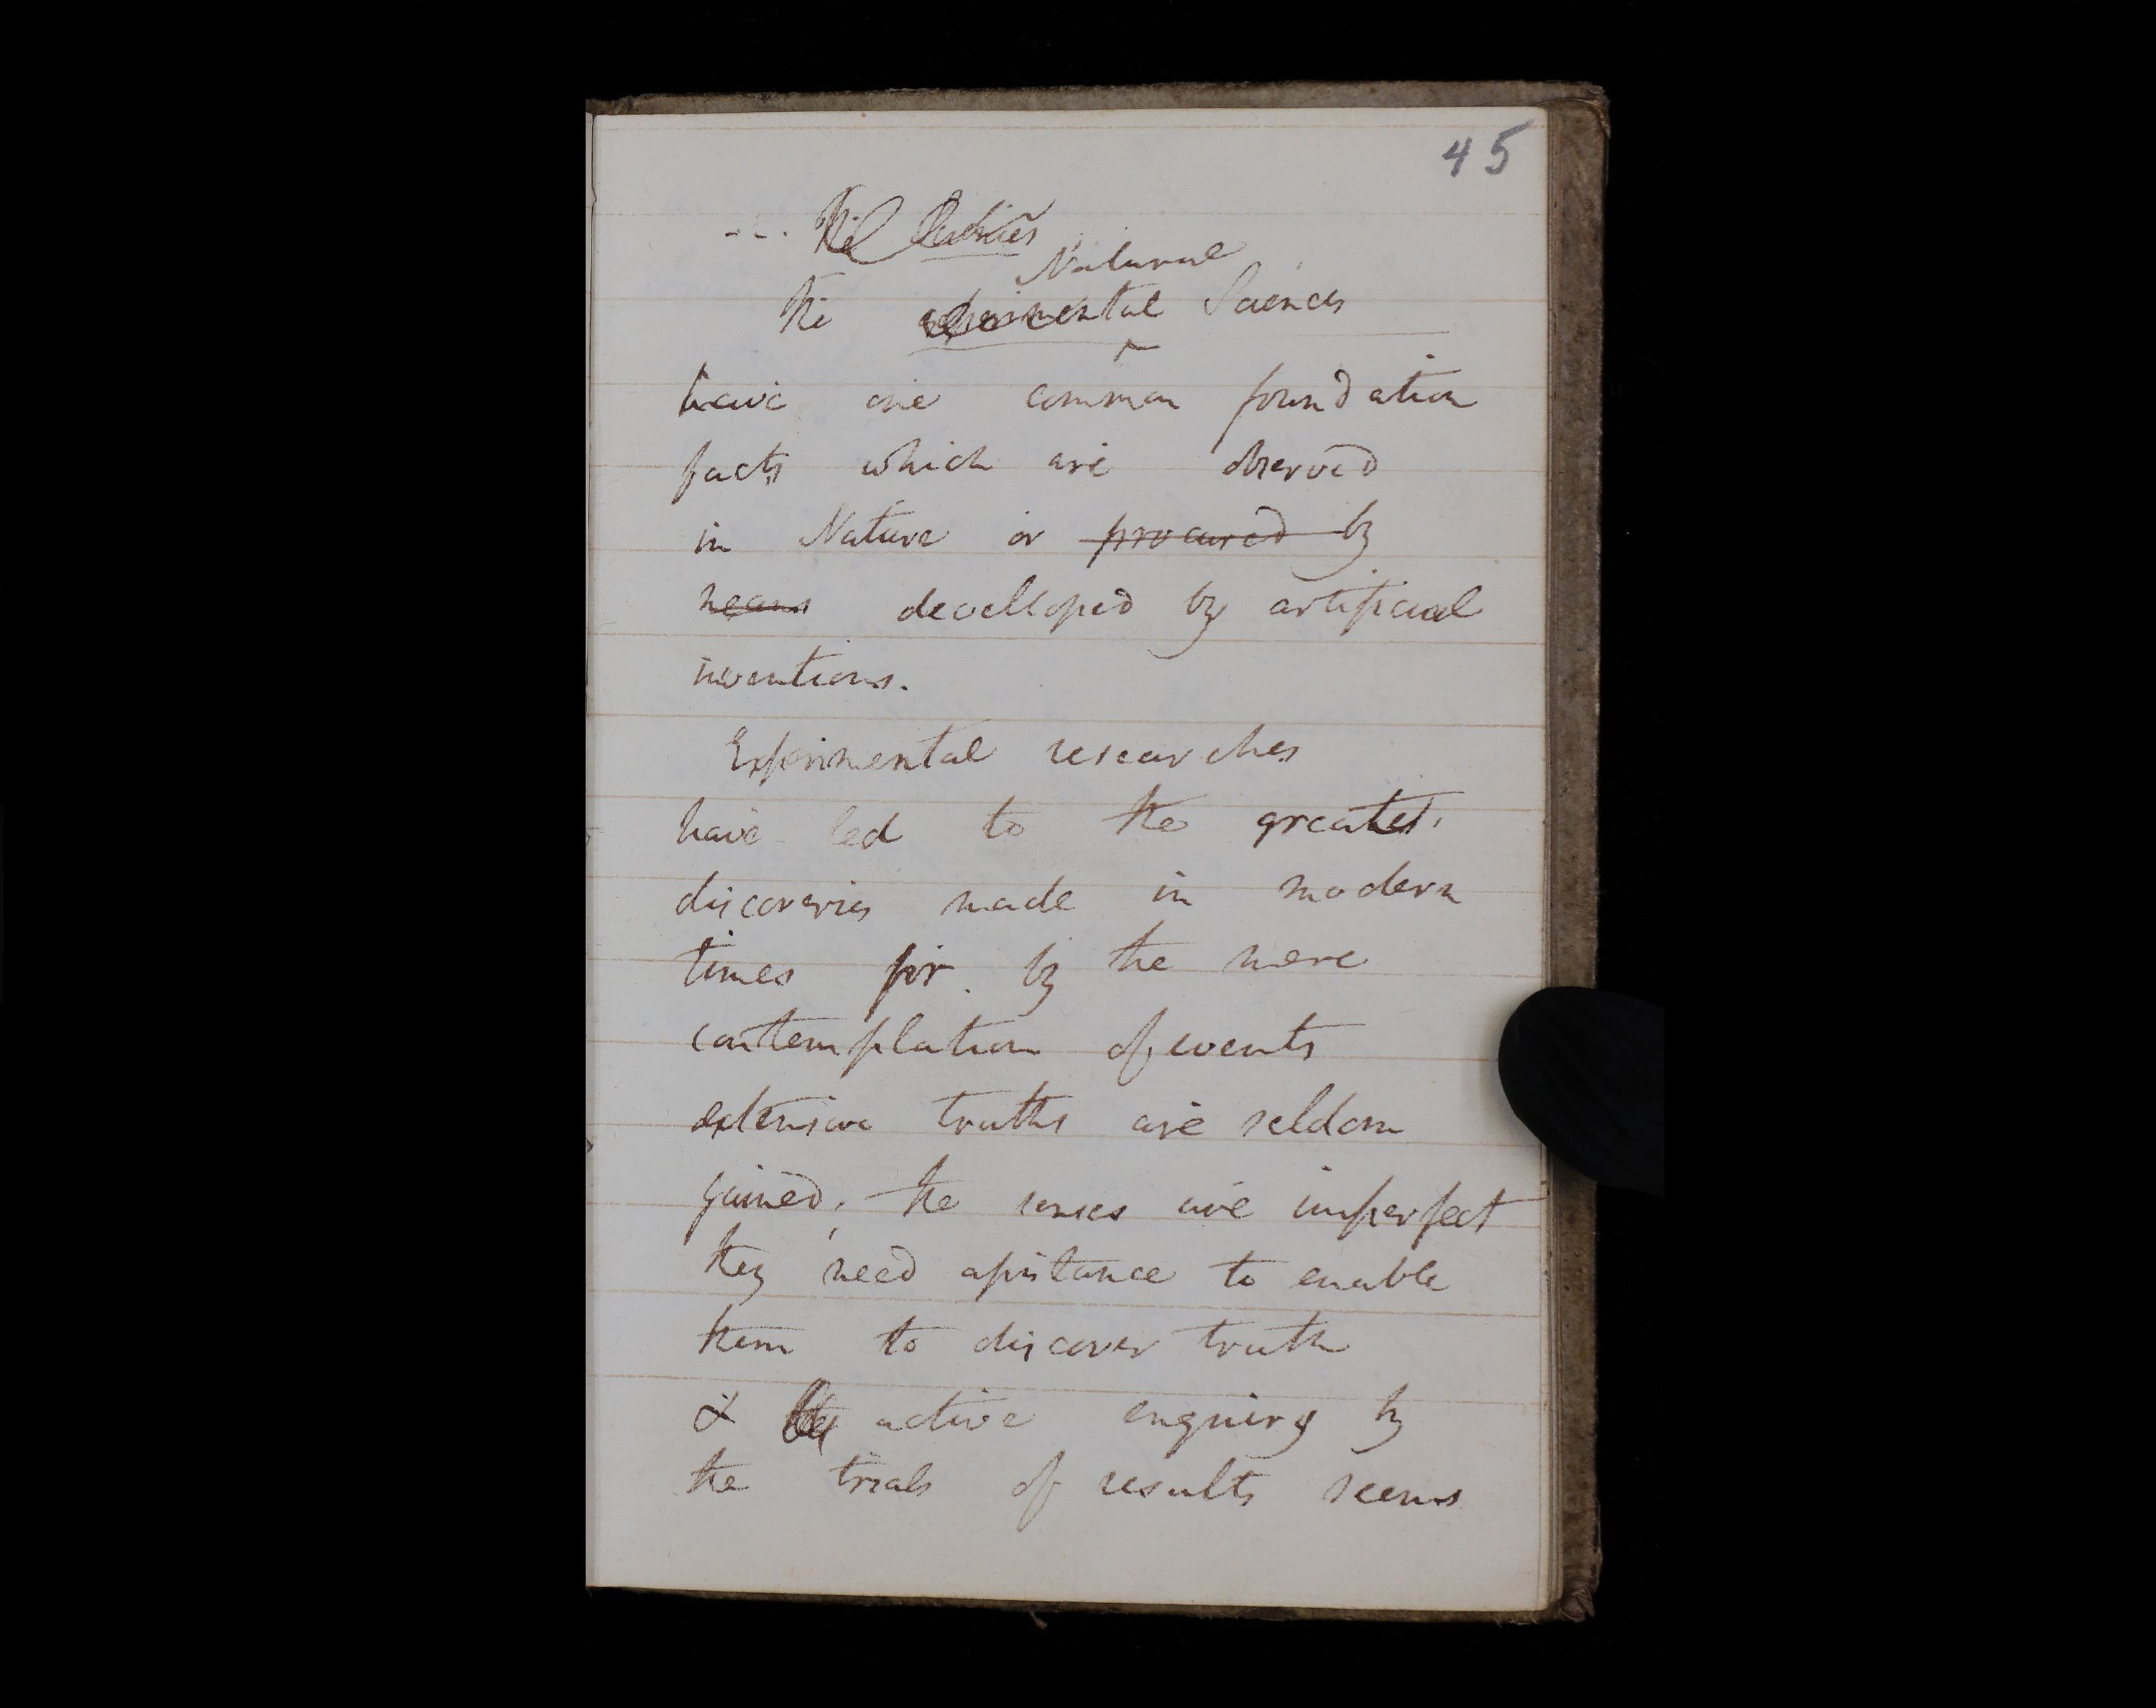 45
The
Natural
The experimental Sciences
have one common foundation
facts which are observed
in Nature or procured by
means developed by artificial
inventions.
Experimental researches
have led to the greatest
discoveries made in modern
times for by the mere
contemplation of events
extensive truths are seldom
gained, the senses are imperfect
they need assistance to enable
them to discover truth
& active enquiry by
the trials of results seems